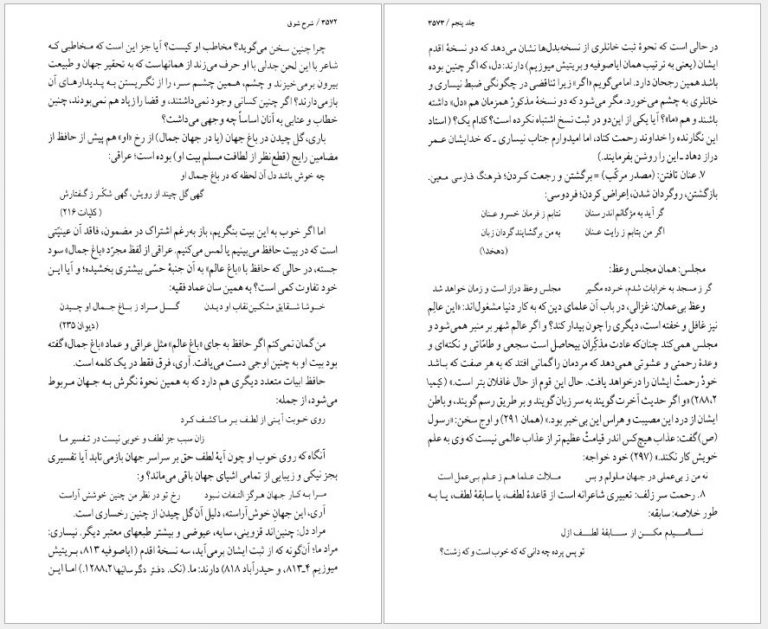 ۳۵۷۲ / شرح شوق
چرا چنین سخن می‌گوید؟ مخاطب او کیست؟ آیا جز این است که مخاطبی که
شاعر با این لحن جدلی با او حرف می‌زند از همانهاست که به تحقیر جهان و طبیعت
بیرون برمی‌خیزند و چشم، همین چشم سر، را از نگریستن به پدیدارهای آن
بازمی‌دارند؟ اگر چنین کسانی وجود نمی‌داشتند، و قضا را زیاد هم نمی‌بودند، چنین
خطاب و عتابی به آنان اساساً چه وجهی می‌داشت؟
باری، گل چیدن در باغ جهان (یا در جهان جمال) از رخ «او» هم پیش از حافظ از
مضامین رایج (قطع‌نظر از لطافت مسلم بیت او) بوده است؛ عراقی:
چه خوش باشد دل آن لحظه که در باغ جمال او
گهی گل چیند از رویش، گهی شکّر ز گفتارش
(کلیات ۲۱۶)
اما اگر خوب به این بیت بنگریم، باز به‌رغم اشتراک در مضمون، فاقد آن عینیّتی
است که در بیت حافظ می‌بینیم یا لمس می‌کنیم. عراقی از لفظ مجرّد «باغ جمال» سود
جسته، در حالی که حافظ با «باغ عالم» به آن جنبهٔ حسّی بیشتری بخشیده؛ و آیا این
خود تفاوت کمی است؟ به همین سان عماد فقیه:
خوشا شقایق مشکین‌نقاب او دیدن
گل مراد ز باغ جمال او چیدن
(دیوان ۲۳۵)
من گمان نمی‌کنم اگر حافظ به جای «باغ عالم» مثل عراقی و عماد «باغ جمال» گفته
بود بیت او به چنین اوجی دست می‌یافت. آری، فرق فقط در یک کلمه است.
حافظ ابیات متعدد دیگری هم دارد که به همین نحوهٔ نگرش به جهان مربوط
می‌شود، از جمله:
روی خوبت آیتی از لطف بر ما کشف کرد
زان سبب جز لطف و خوبی نیست در تفسیر ما
آنگاه که روی خوب او چون آیهٔ لطف حق بر سراسر جهان بازمی‌تابد آیا تفسیری
بجز نیکی و زیبایی از تمامی اشیای جهان باقی می‌ماند؟ و:
مرا به کار جهان هرگز التفات نبود
رخ تو در نظر من چنین خوشش آراست
آری، این جهانِ خوش‌آراسته، دلیل آن گل چیدن از چنین رخساری است.
مراد دل: چنین‌اند قزوینی، سایه، عیوضی و بیشتر طبعهای معتبر دیگر. نیساری:
مراد ما؛ آن‌گونه که از ثبت ایشان برمی‌آید، سه نسخهٔ اقدم (ایاصوفیه ۸۱۳، بریتیش
میوزیم ۴ـ۸۱۳، و حیدرآباد ۸۱۸) دارند: ما. (نک. دفتر دگرسانیها ۱۲۸۸،۲.) اما این
جلد پنجم / ۳۵۷۳
در حالی است که نحوهٔ ثبت خانلری از نسخه‌بدل‌ها نشان می‌دهد که دو نسخهٔ اقدم
ایشان (یعنی به ترتیب همان ایاصوفیه و بریتیش میوزیم) دارند: دل، که اگر چنین بوده
باشد همین رجحان دارد. اما می‌گویم «اگر» زیرا تناقضی در چگونگی ضبط نیساری و
خانلری به چشم می‌خورد. مگر می‌شود که دو نسخهٔ مذکورْ همزمان هم «دل» داشته
باشند و هم «ما»؟ آیا یکی از این‌دو در ثبت نسخ اشتباه نکرده است؟ کدام یک؟ (استاد
این نگارنده را خداوند رحمت کناد، اما امیدوارم جناب نیساری ـ که خدایشان عمر
دراز دهاد ـ این را روشن بفرمایند.)
۷. عنان تافتن: (مصدر مرکّب) = برگشتن و رجعت کردن؛ فرهنگ فارسی معین.
بازگشتن، روگردان شدن، اِعراض کردن؛ فردوسی:
گر آید به مژگانم اندر سنان
نتابم ز فرمان خسرو عنان
اگر من بتابم ز رایت عنان
به من برگشایند گردان زبان
(دهخدا)
مجلس: همان مجلس وعظ:
گر ز مسجد به خرابات شدم، خرده مگیر
مجلس وعظ دراز است و زمان خواهد شد
وعظ بی‌عملان: غزالی، در باب آن علمای دین که به کار دنیا مشغول‌اند: «این عالِم
نیز غافل و خفته است، دیگری را چون بیدار کند؟ و اگر عالم شهر بر منبر همی‌شود و
مجلس همی‌کند چنان‌که عادت مذکِّران بیحاصل است سجعی و طامّاتی و نکته‌ای و
وعدهٔ رحمتی و عشوتی همی‌دهد که مردمان را گمانی افتد که به هر صفت که باشد
خودْ رحمتْ ایشان را درخواهد یافت. حال این قوم از حال غافلان بتر است.» (کیمیا
۲۸۸،۲) «و اگر حدیث آخرت گویند به سر زبان گویند و بر طریق رسم گویند، و باطن
ایشان از درد این مصیبت و هراس این بی‌خبر بود.» (همان ۲۹۱) و اوج سخن: «رسول
(ص) گفت: عذاب هیچ‌کس اندر قیامتْ عظیم‌تر از عذاب عالمی نیست که وی به علم
خویش کار نکند.» (۲۹۷) خود خواجه:
نه من ز بی‌عملی در جهان ملولم و بس
ملالت علما هم ز علم بی‌عمل است
۸. رحمت سر زلف: تعبیری شاعرانه است از قاعدهٔ لطف، یا سابقهٔ لطف، یا به
طور خلاصه: سابقه:
ناامیدم مکن از سابقهٔ لطف ازل
تو پس پرده چه دانی که که خوب است و که زشت؟